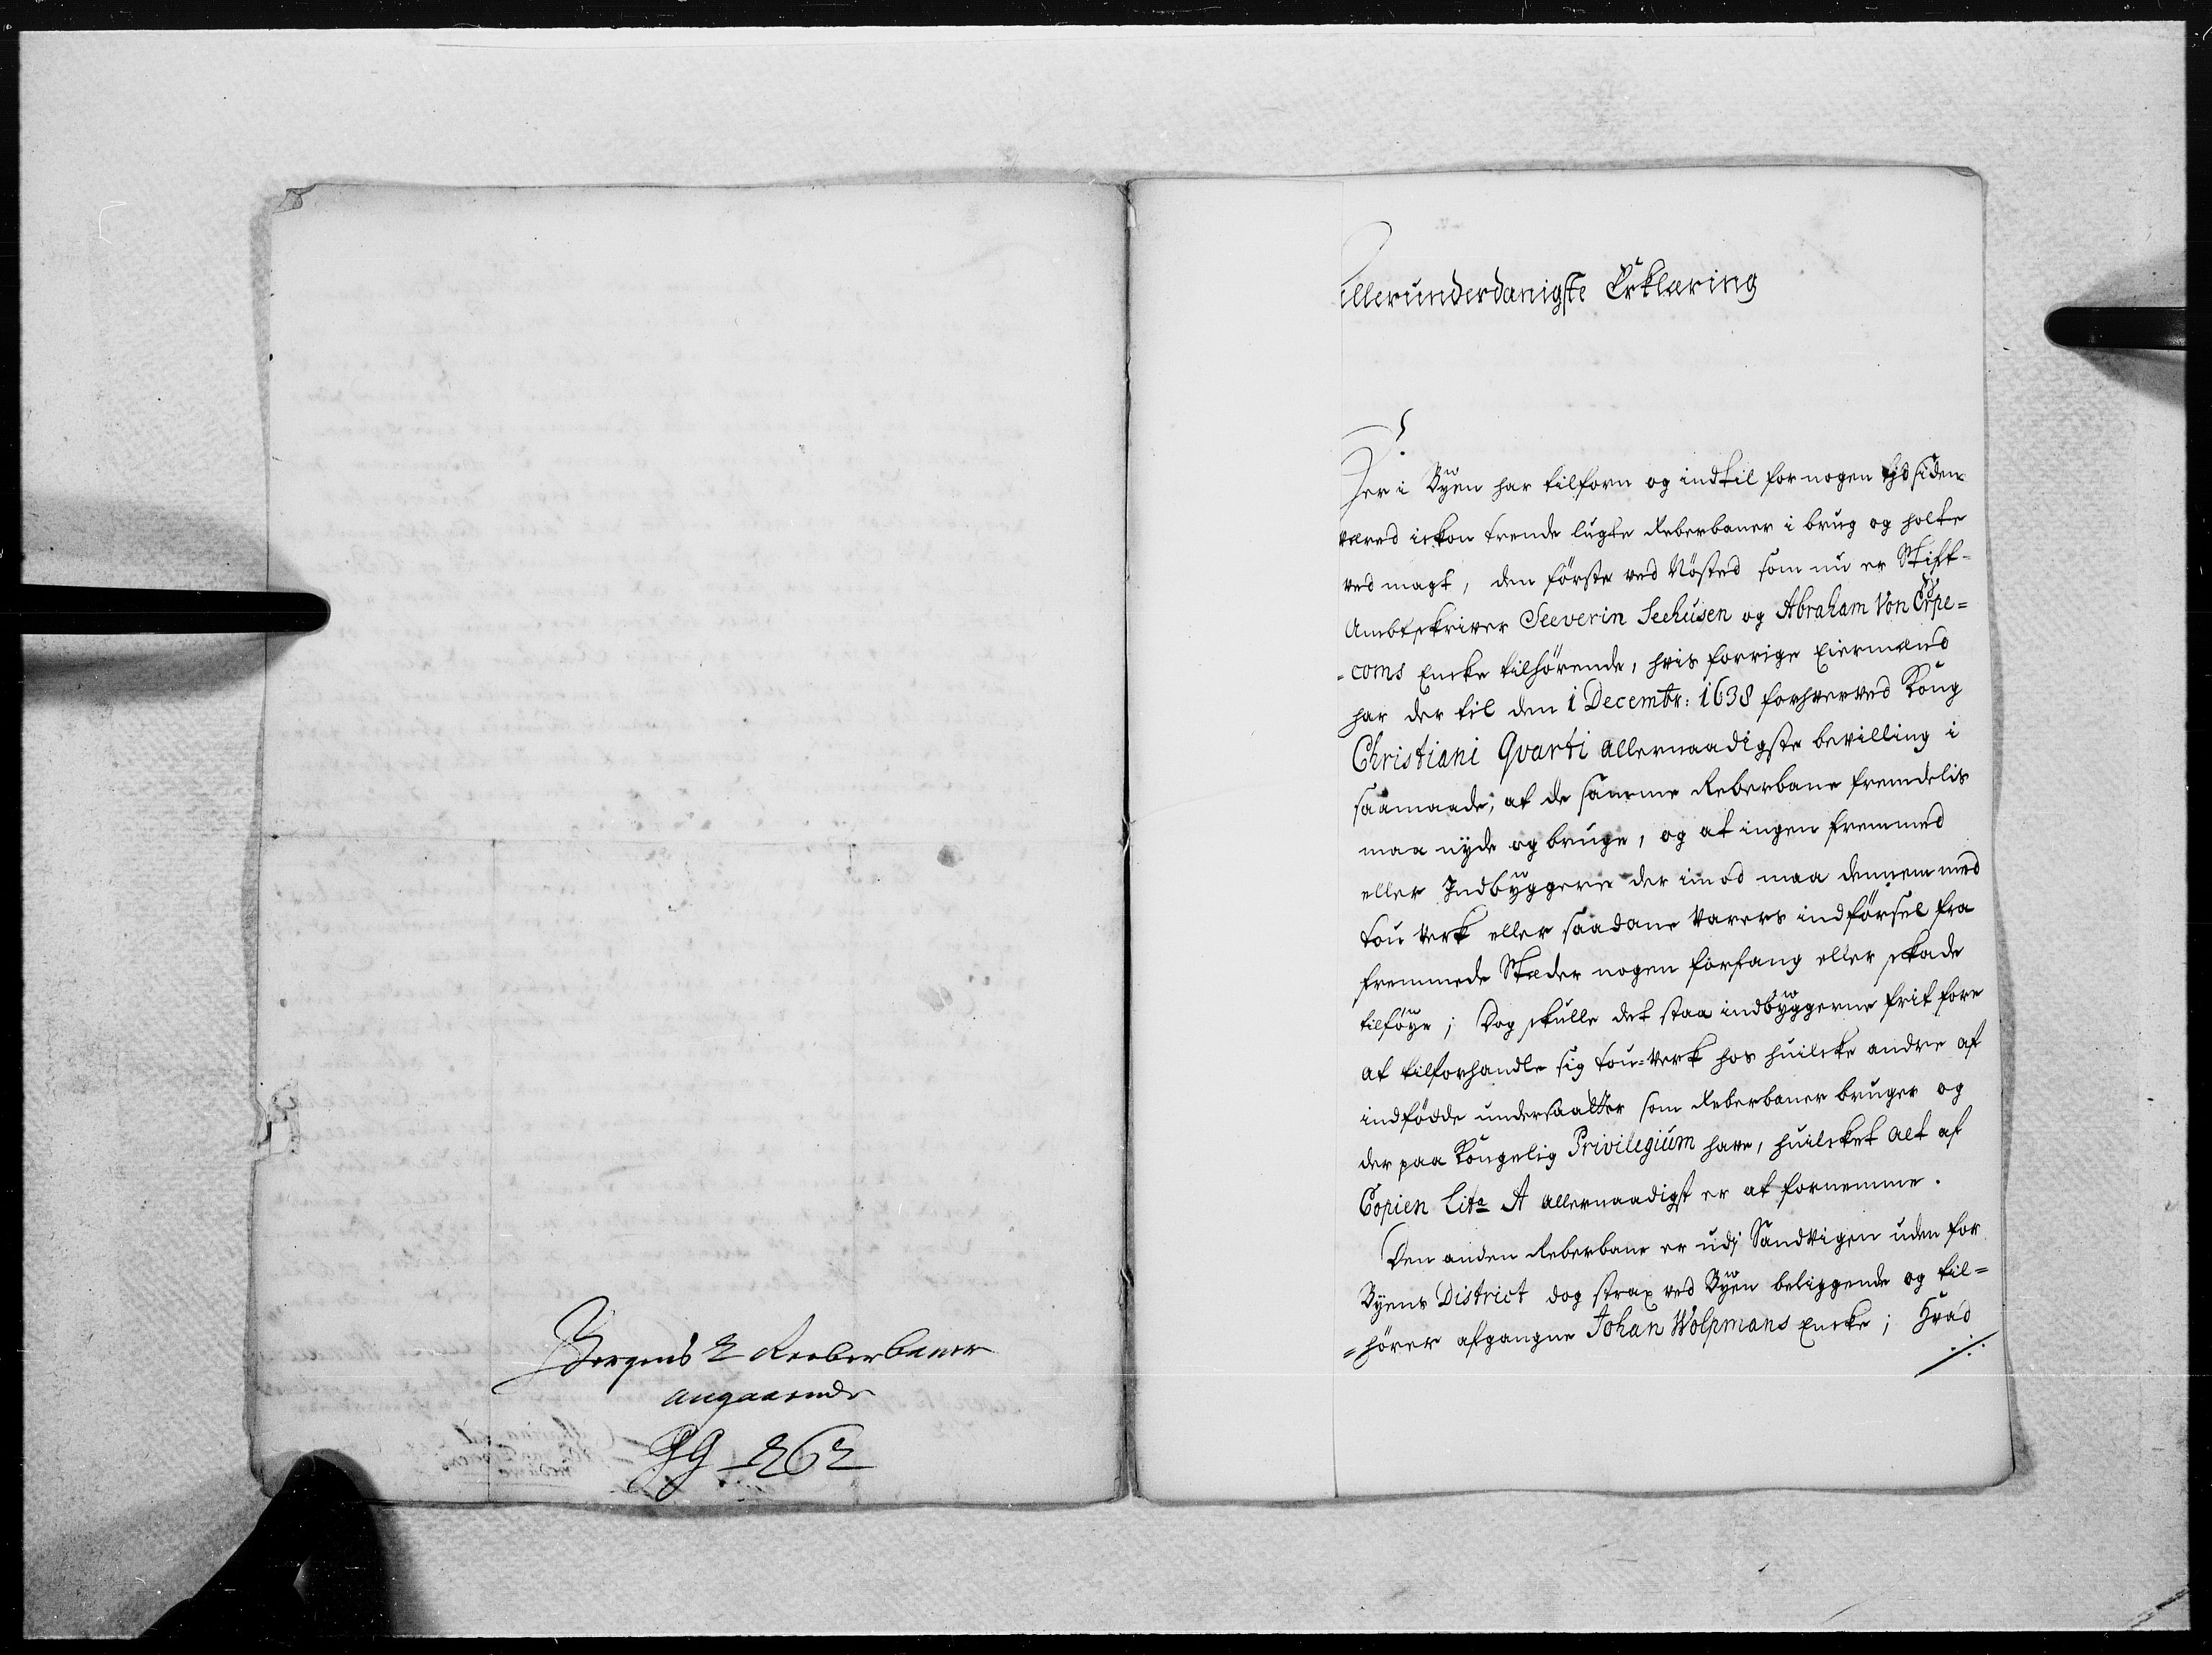 Bergens 2 Reeberbaner
angaaende
GG - 262
Allerunderdanigste Erklæring
Her i Byen har tilforn og indtil for nogen tjd siden
været ickon trende lugte Reberbaner i brug og holte
ved magt, den förste ved Nösted som nu er Stift-
Ambtskriver Seeverin Seehusen og Abraham Von Erpe=
=coms Encke tilhörende, hvis forrige Eiermænd
har der til den 1 Decembr: 1638 forhverved Kong
Christiani Qvarti allernaadigste bevilling i
saamaade, at de samme Reberbane fremdelis
maa nyde og bruge, og at ingen fremmed
eller Indbyggere der imod maa dennem med
tou verk eller saadane Varers indförsel fra
fremmede Stæder nogen forfang eller skade
tilföye; Dog skulle det staa indbyggerne frit fore
at tilforhandle sig tou=verk hos huilcke andre af
indfödde undersaatter som Reberbaner bruger og
der paa Kongelig Privilegium have, huilcket alt af
Copien Lita A allernaadigst er at fornemme.
Den anden Reberbane er udj Sandvigen uden for
Byens District dog strax ved Byen beliggende og til=
=hörer afgangne Johan Wolpmans Encke; Hvad
./.